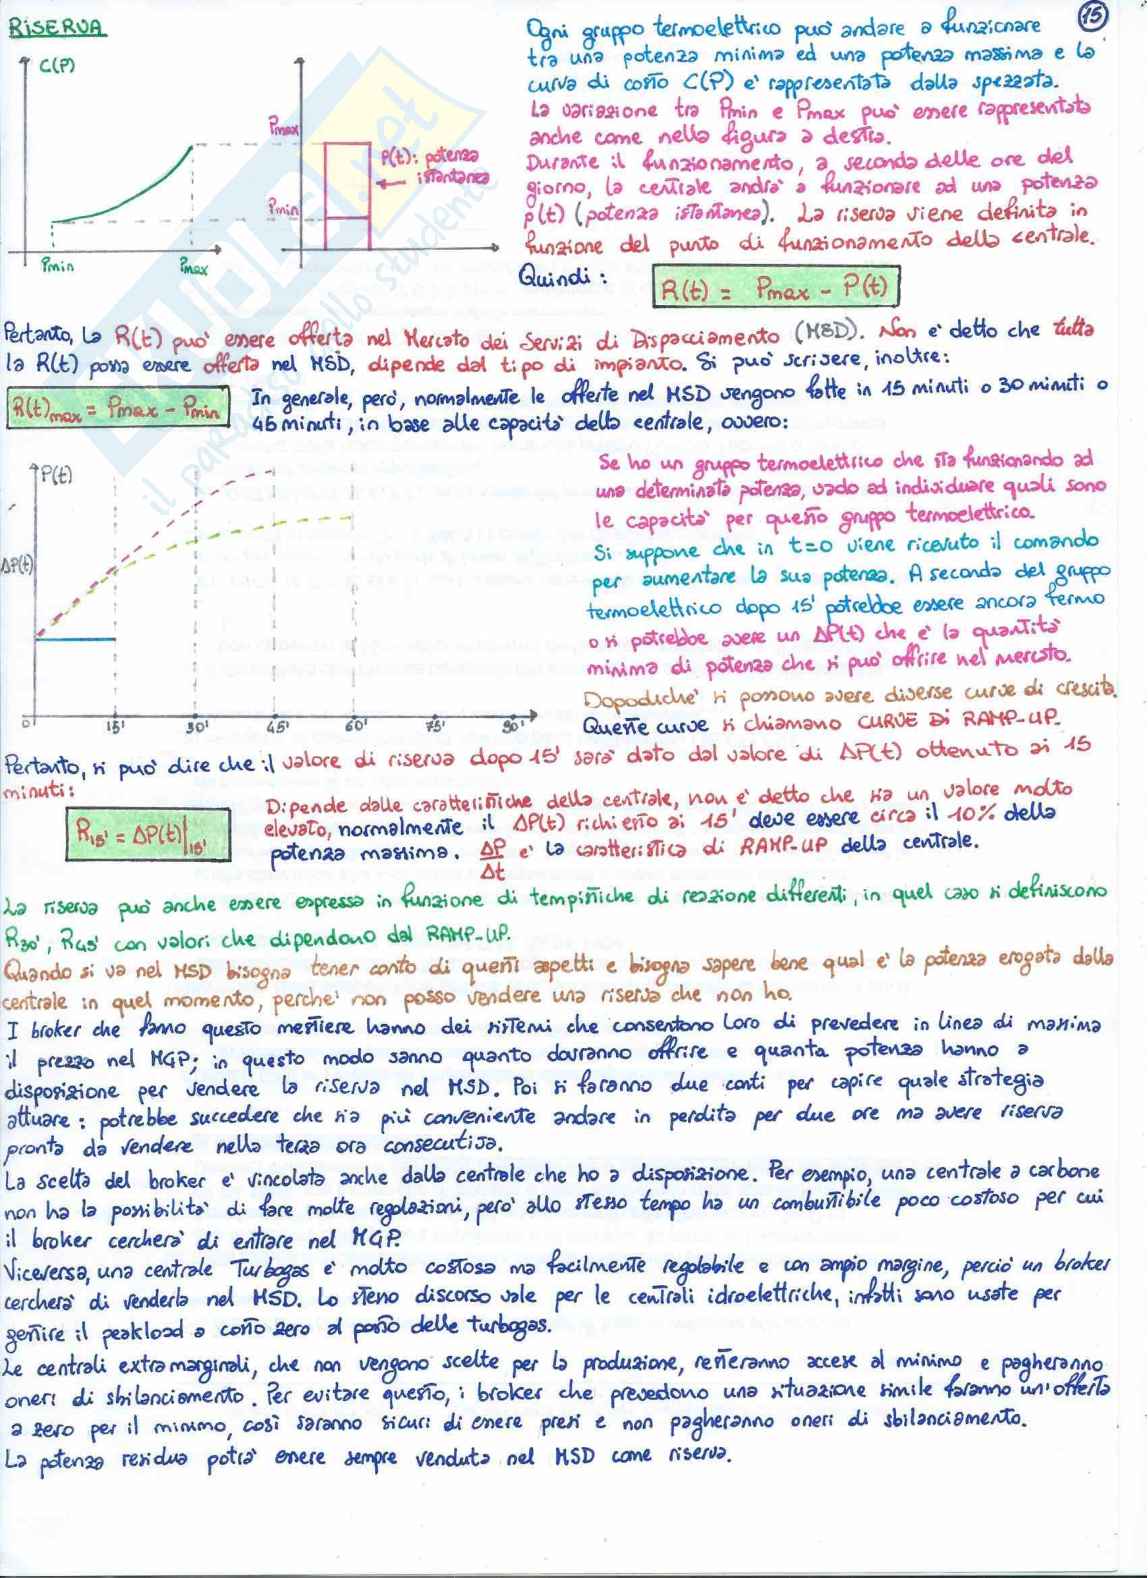 15
RISERVA
C(P)
Pmin
Pmax
Pmax
Pmin
P(t): potenza
istantanea
Ogni gruppo termoelettrico può andare a funzionare
tra una potenza minima ed una potenza massima e la
curva di costo C(P) è rappresentata dalla spezzata.
La variazione tra Pmin e Pmax può essere rappresentata
anche come nella figura a destra.
Durante il funzionamento, a seconda delle ore del
giorno, la centrale andrà a funzionare ad una potenza
p(t) (potenza istantanea). La riserva viene definita in
funzione del punto di funzionamento della centrale.
Quindi:
R(t) = Pmax - P(t)
Pertanto, la R(t) può essere offerta nel Mercato dei Servizi di Dispacciamento (MSD). Non è detto che tutta
la R(t) possa essere offerta nel MSD, dipende dal tipo di impianto. Si può scrivere, inoltre:
R(t)max = Pmax - Pmin
In generale, però, normalmente le offerte nel MSD vengono fatte in 15 minuti o 30 minuti o
45 minuti, in base alle capacità della centrale, ovvero:
P(t)
ΔP(t)
0'
15'
30'
45'
60'
75'
90'
Se ho un gruppo termoelettrico che sta funzionando ad
una determinata potenza, vado ad individuare quali sono
le capacità per questo gruppo termoelettrico.
Si suppone che in t=0 viene ricevuto il comando
per aumentare la sua potenza. A seconda del gruppo
termoelettrico dopo 15' potrebbe essere ancora fermo
o si potrebbe avere un ΔP(t) che è la quantità
minima di potenza che si può offrire nel mercato.
Dopodiché si possono avere diverse curve di crescita.
Queste curve si chiamano CURVE DI RAMP-UP.
Pertanto, si può dire che il valore di riserva dopo 15' sarà dato dal valore di ΔP(t) ottenuto ai 15
minuti:
R15' = ΔP(t)|15'
Dipende dalle caratteristiche della centrale, non è detto che sia un valore molto
elevato, normalmente il ΔP(t) richiesto ai 15' deve essere circa il 10% della
potenza massima. ΔP/Δt è la caratteristica di RAMP-UP della centrale.
La riserva può anche essere espressa in funzione di tempistiche di reazione differenti, in quel caso si definiscono
R30', R45' con valori che dipendono dal RAMP-UP.
Quando si va nel MSD bisogna tener conto di questi aspetti e bisogna sapere bene qual è la potenza erogata dalla
centrale in quel momento, perchè non posso vendere una riserva che non ho.
I broker che fanno questo mestiere hanno dei sistemi che consentono loro di prevedere in linea di massima
il prezzo nel MGP; in questo modo sanno quanto dovranno offrire e quanta potenza hanno a
disposizione per vendere la riserva nel MSD. Poi si faranno due conti per capire quale strategia
attuare: potrebbe succedere che sia più conveniente andare in perdita per due ore ma avere riserva
pronta da vendere nella terza ora consecutiva.
La scelta del broker è vincolata anche dalla centrale che ho a disposizione. Per esempio, una centrale a carbone
non ha la possibilità di fare molte regolazioni, però allo stesso tempo ha un combustibile poco costoso per cui
il broker cercherà di entrare nel MGP.
Viceversa, una centrale Turbogas è molto costosa ma facilmente regolabile e con ampio margine, perciò un broker
cercherà di venderla nel MSD. Lo stesso discorso vale per le centrali idroelettriche, infatti sono usate per
gestire il peakload a costo zero al posto delle turbogas.
Le centrali extra marginali, che non vengono scelte per la produzione, resteranno accese al minimo e pagheranno
oneri di sbilanciamento. Per evitare questo, i broker che prevedono una situazione simile faranno un'offerta
a zero per il minimo, così saranno sicuri di essere presi e non pagheranno oneri di sbilanciamento.
La potenza residua potrà essere sempre venduta nel MSD come riserva.
SKUOLA.net
il paradiso dello studente